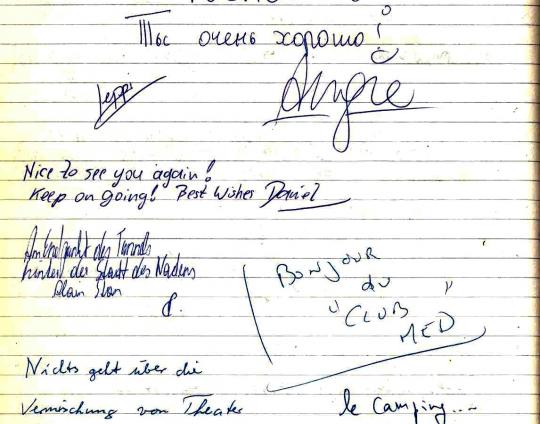 Тыс очень хорошо!
Jeppi
Angie
Nice to see you again!
Keep on going! Best Wishes Daniel
Am Endpunkt des Tunnels
hinter der Stadt des Nadens
Alain
BONJOUR
du
"CLUB
MED"
Nichts geht über die
Vermischung von Theater
le Camping...